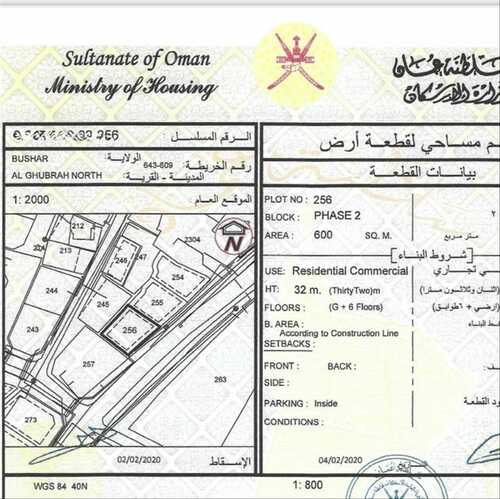 Sultanate of Oman
Ministry of Housing
الرقم المسلسل :
BUSHAR
الولاية:
643-609
رقم الخريطة:
AL GHUBRAH NORTH
المدينة - القرية:
1: 2000
الموقع العام
م مساحي لقطعة أرض
بيانات القطعة
PLOT NO : 256
BLOCK : PHASE 2
AREA : 600 SQ. M.
متر مربع
شروط البناء
USE: Residential Commercial
ي تجاري
HT: 32 m. (ThirtyTwo)m
(اثنان وثلاثون مترا)
FLOORS : (G + 6 Floors)
(أرضي + ٦طوابق)
B. AREA :
According to Construction Line
SETBACKS :
FRONT : BACK :
SIDE :
PARKING : Inside
CONDITIONS :
212
213
2304
N
246
247
255
254
244
256
243
257
263
273
02/02/2020
الإسقاط
04/02/2020
تاريخ
WGS 84 40N
1: 800